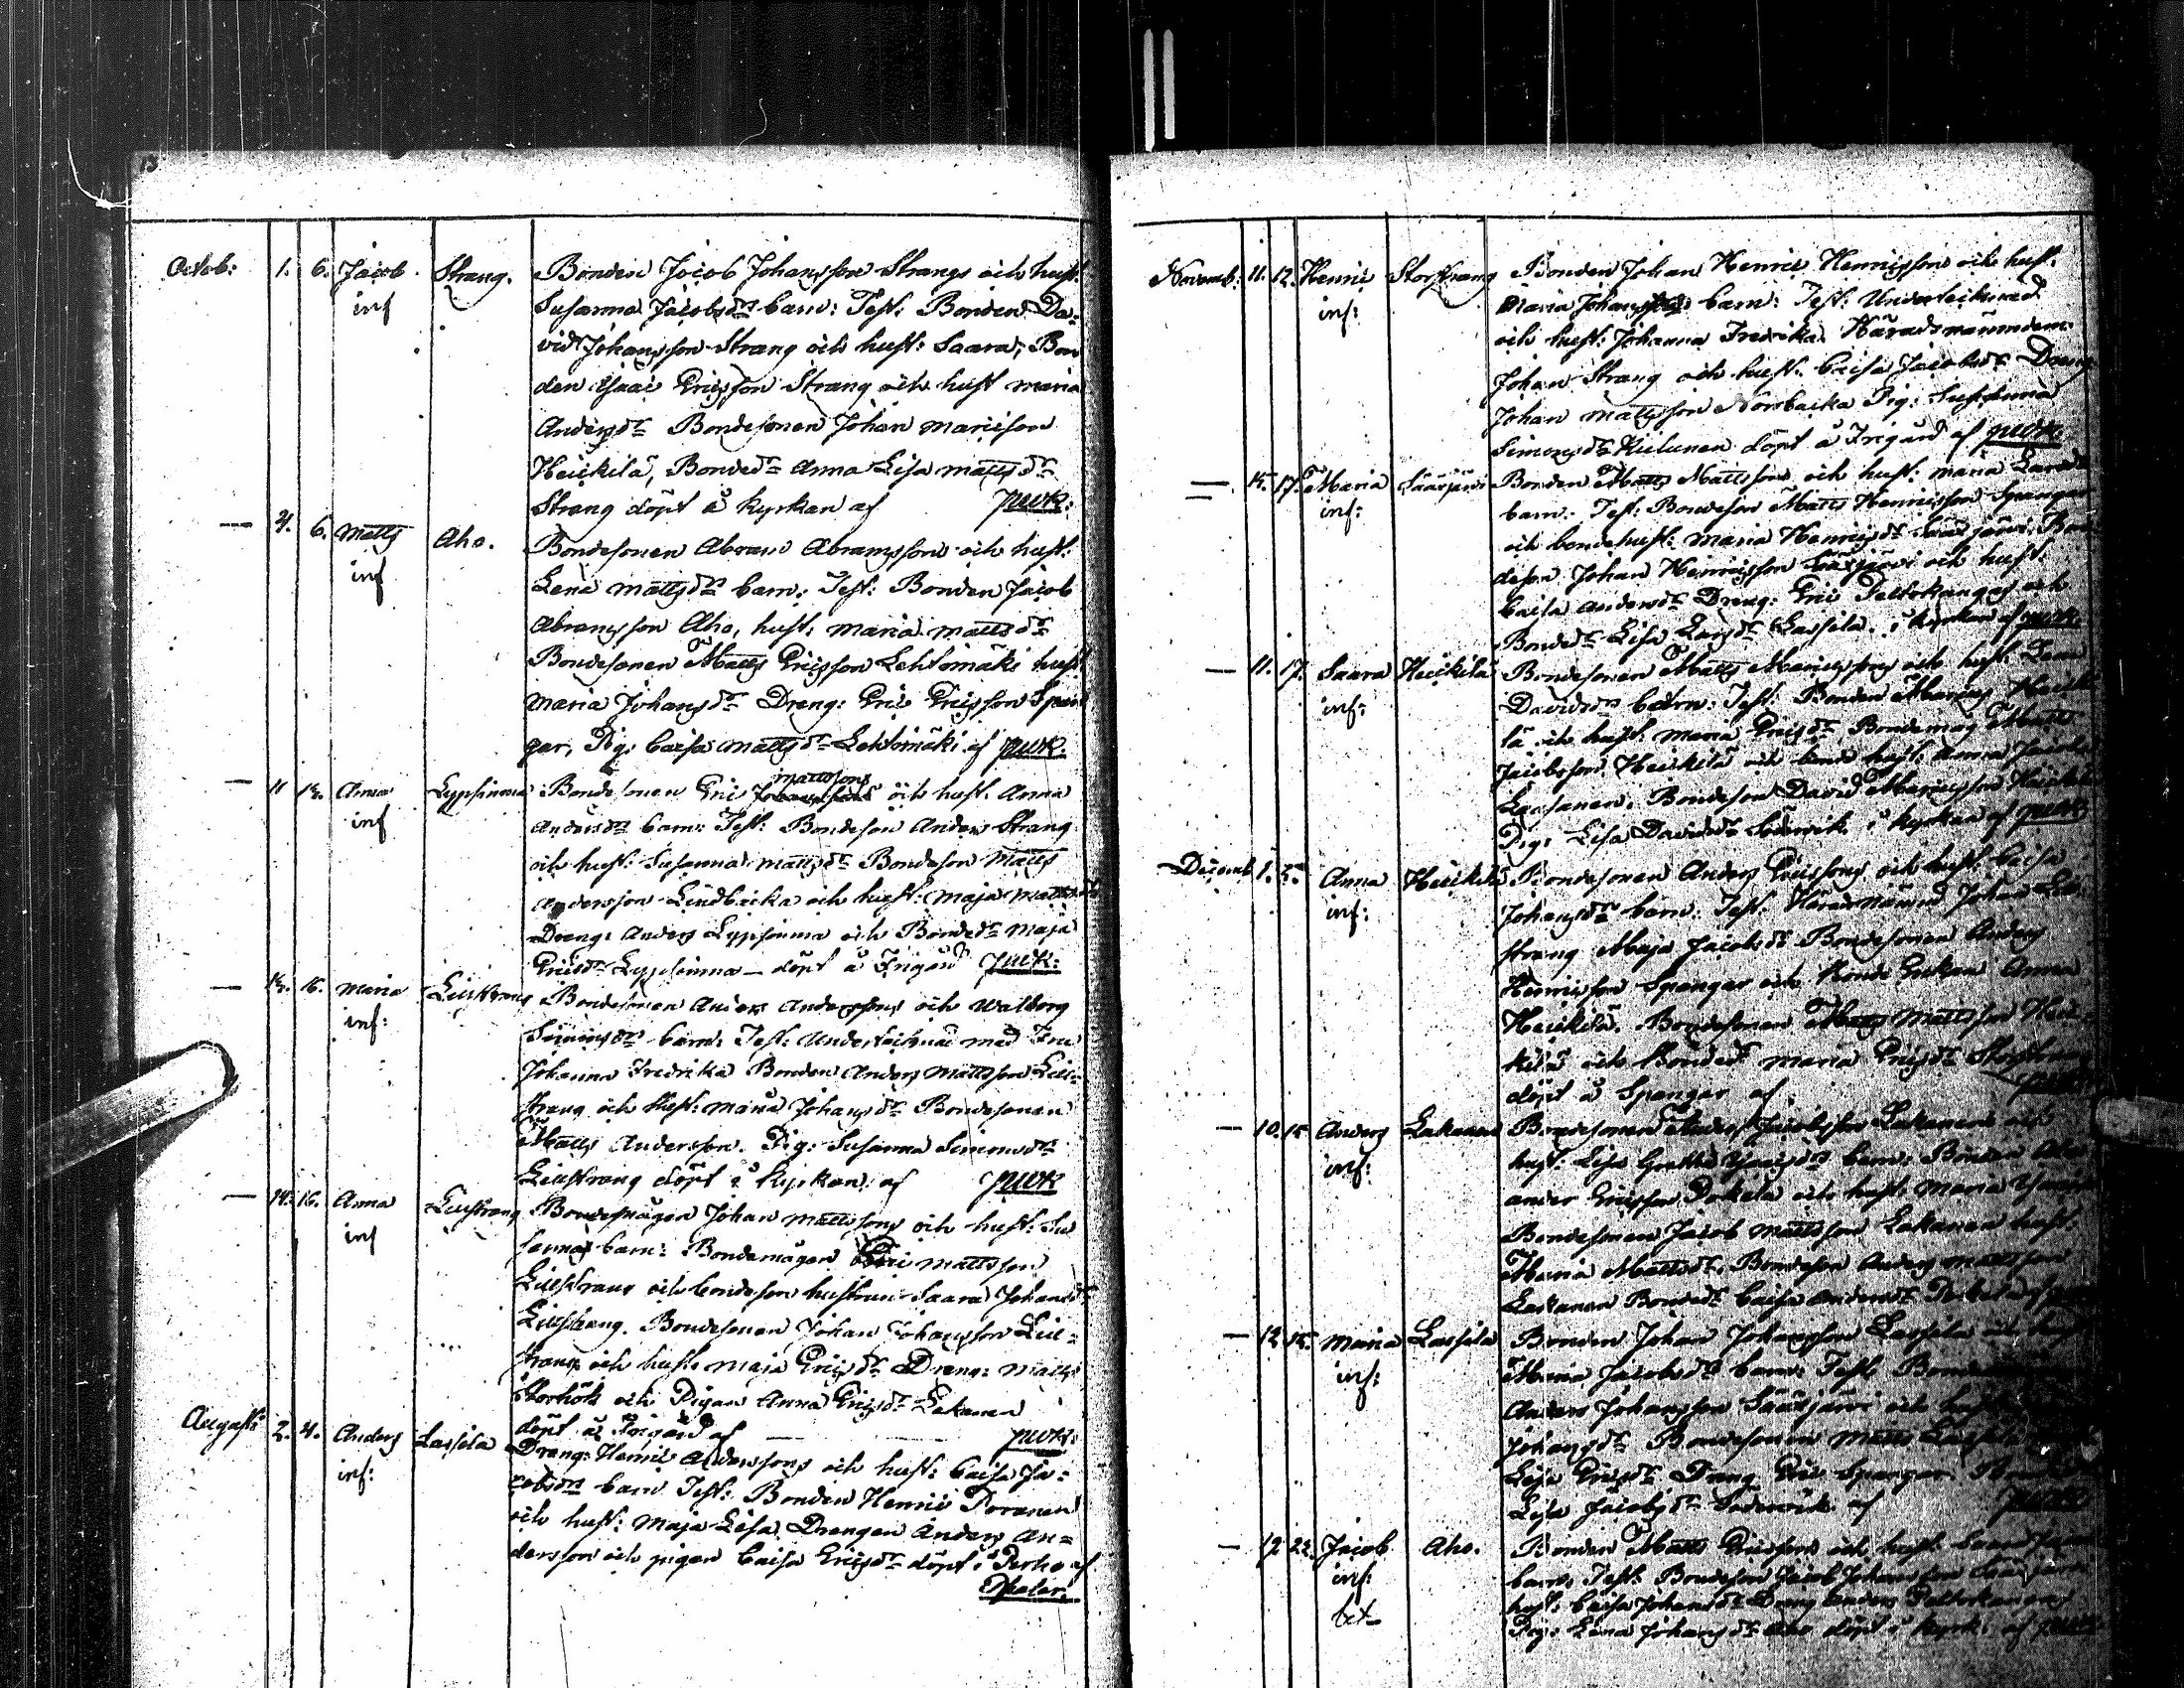 13
Octob: 1. 6. Jacob Strang. Bonden Jacob Johansson Strangs och hust:
inf Susanna Jacobsdr barn: Test: Bonden Da-
vid Johansson Strang och hust: Saara, Bon
den Isaac Ericsson Strang och hust Maria
Andersdr Bondesonen Johan Maricson
Heickilä, Bondedr Anna Lisa Mattsdr
Strang döpt i kyrkan af JWK.
— 4. 6. Matts Aho. Bondesonen Abram Abramssons och hust:
inf Lena Mattsdr barn: Test: Bonden Jacob
Abramsson Aho, hust: Maria Mattsdr
Bondesonen Matts Ericsson Lehtimäki hust
Maria Johansdr Dreng: Eric Ericsson Span
gar, Pig: Caisa Mattsdr Lehtimäki af JWK.
— 11 12. Anna Lypsinma Bondesonen Eric Mattssons och hust. Anna
inf Andersdr barn: Test: Bondeson Anders Strang
och hust: Susanna Mattsdr Bondeson Matts
Andersson Lindbacka och hust: Maja
Dreng: Anders Lypsinma och Bondedr Maja
Ericsdr Lypsinma — döpt å Frigård JWK:
— 15. Maria Lillstrang Bondesonen Anders Anderssons och Walborg
inf: Simonsdr barn: Test: Undertecknad med Fru
Johanna Fredrika Bonden Anders Mattsson Lill-
strang och Hust: Maria Johansdr Bondesonen
Matts Andersson. Pig: Susanna Simonsdr
Lillstrang döpt i kyrkan af JWK
— 14. 16. Anna Lillstrang Bondemågen Johan Mattssons och hust: Su
inf sannas barn: Bondemågen Mattsson
Lillstrang och bondeson hustrun Saara Johansdr
Lillstrang. Bondesonen Johan Johansson Lill-
strang och hust: Maja Ericsdr Dreng: Matts
Storhök och Pigan Anna Ericsdr Lakanen
döpt å Frigård af — JWK:
Augusti 2. 4. Anders Lassila Dreng: Henric Anderssons och hust: Caisa Ja-
inf: cobsdr barn Test: Bonden Henric Poranen
och hust: Maja Lisa, Drengen Anders An-
dersson och pigan Caisa Ericsdr döpt i Perho af
Novemb: 11. 12. Henric Storstrang Bonden Johan Henric Henricssons och hust.
inf: Maria barn: Test: Undertecknad
och hust: Johanna Fredrika. Häradsnämndem:
Johan Strang och hust: Caisa Jacobsdr Dreng
Johan Mattsson Norrbacka Pig: Susanna
Simonsdr Kiilunen döpt å Frigård af JWK
— 15. 17. Maria Säärjärvi Bonden Matts Mattssons och hust: Maria
inf: barn: Test: Bondeson Matts Henricsson Spangar
och bondehust: Maria Henricsdr Säärjärvi. Bon
deson Johan Henricsson Säärjärvi och hust:
Caisa Andersdr Dreng: Eric Peltokangas och
Bondedr Lisa Larsdr Lassila. i kyrkan af JWK
— 11. 17. Saara Heickilä Bondesonen Matts Maricssons och hust: Lena
inf: Davidsdr barn: Test: Bonden Maricus Heicki
lä och hust: Maria Ericsdr Bondemåg Matts
Jacobsson Heickilä och bonde hust: Anna
Laasanen. Bondeson David Maricsson Heickilä
Pig: Lisa Davidsdr Söderwik i kyrkan af JWK
Decemb 1. Anna Heickilä Bondesonen Anders Ericssons och hust: Caisa
inf: Johansdr barn: Test: Häradsnämnd Johan
strang Maja Jacobsdr Bondesonen Anders
Henricsson Spangar och Bonde Enkan Anna
Heickilä. Bondesonen Matts Mattsson Heic
kilä och Bondedr Maria Ericsdr
döpt å Spangar af
— 10. 15 Anders Lakanen Bondesonen Anders Jacobsson Lakanens och
inf: hust: Lisa Greta barn: Bonden
ander Ericsson Pokela och hust: Maria
Bondesonen Jacob Mattsson Lakanen hust:
Maria Mattsdr. Bondeson Anders Mattsson
Lakanen Bondedr Caisa Andersdr
— 12 15. Maria Lassila Bonden Johan Johansson Lassila och hust
inf: Maria Jacobsdr barn: Test:
Anders Johansson Säärjärvi och
Johansdr Bondesonen Matts
Lisa Ericsdr Dreng Eric Spangar
Lisa Jacobsdr Söderwik af JWK
— 12 22. Jacob Aho. Bonden Matts Ericssons och hust
inf: barn: Test: Bondeson Jacob Johansson
hust: Caisa Johansdr Dreng Anders Peltokangas
Pig: Lena Johansdr Aho döpt i kyrk: af